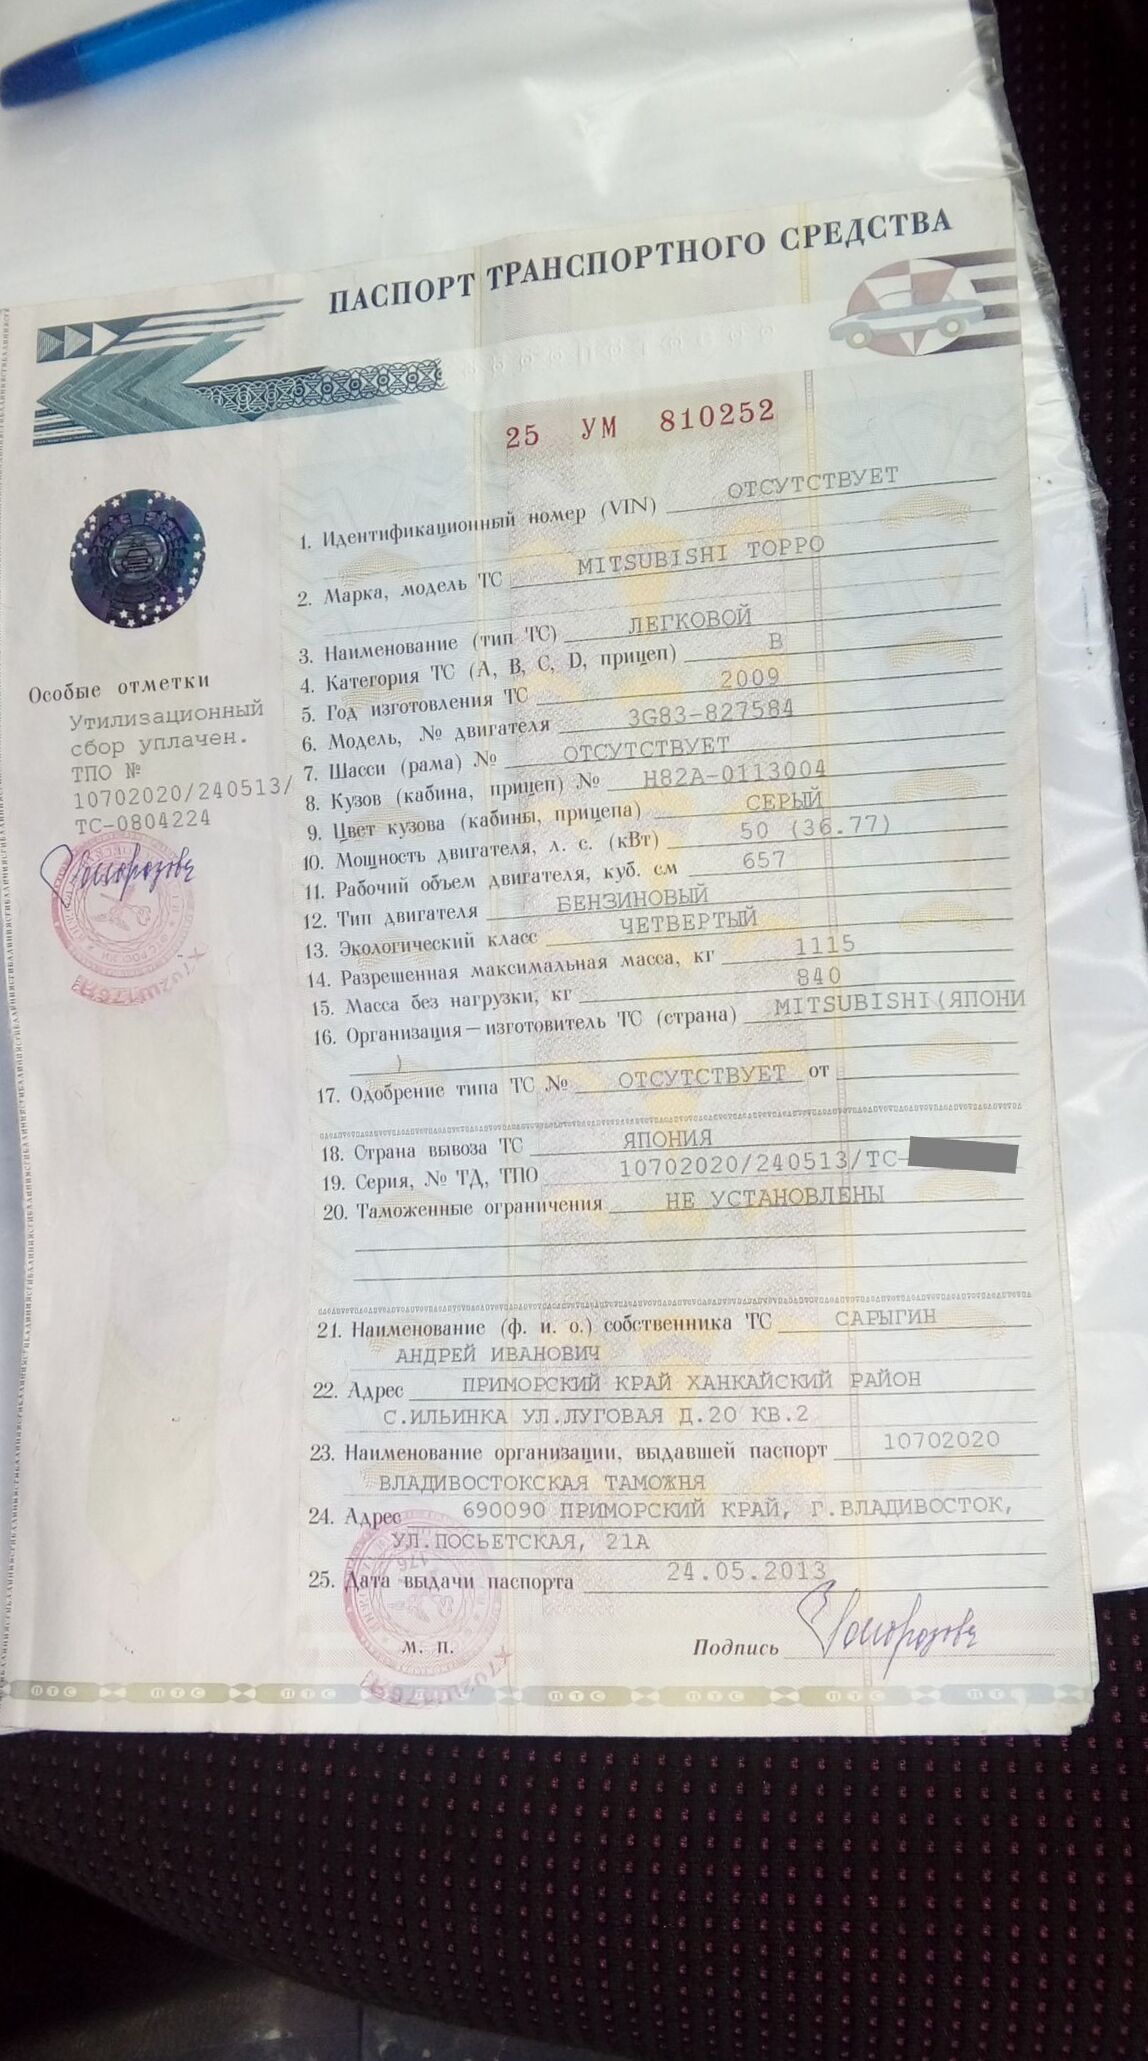 ПАСПОРТ ТРАНСПОРТНОГО СРЕДСТВА
25 УМ 810252
1. Идентификационный номер (VIN) ОТСУТСТВУЕТ
2. Марка, модель ТС MITSUBISHI TOPPO
3. Наименование (тип ТС) ЛЕГКОВОЙ
4. Категория ТС (A, B, C, D, прицеп) B
5. Год изготовления ТС 2009
6. Модель, № двигателя 3G83-827584
7. Шасси (рама) № ОТСУТСТВУЕТ
8. Кузов (кабина, прицеп) № H82A-0113004
9. Цвет кузова (кабины, прицепа) СЕРЫЙ
10. Мощность двигателя, л. с. (кВт) 50 (36.77)
11. Рабочий объем двигателя, куб. см 657
12. Тип двигателя БЕНЗИНОВЫЙ
13. Экологический класс ЧЕТВЕРТЫЙ
14. Разрешенная максимальная масса, кг 1115
15. Масса без нагрузки, кг 840
16. Организация – изготовитель ТС (страна) MITSUBISHI(ЯПОНИ
)
17. Одобрение типа ТС № ОТСУТСТВУЕТ от
18. Страна вывоза ТС ЯПОНИЯ
19. Серия, № ТД, ТПО 10702020/240513/ТС-
20. Таможенные ограничения НЕ УСТАНОВЛЕНЫ
21. Наименование (ф. и. о.) собственника ТС САРЫГИН
АНДРЕЙ ИВАНОВИЧ
22. Адрес ПРИМОРСКИЙ КРАЙ ХАНКАЙСКИЙ РАЙОН
С.ИЛЬИНКА УЛ.ЛУГОВАЯ Д.20 КВ.2
23. Наименование организации, выдавшей паспорт 10702020
ВЛАДИВОСТОКСКАЯ ТАМОЖНЯ
24. Адрес 690090 ПРИМОРСКИЙ КРАЙ, Г.ВЛАДИВОСТОК,
УЛ.ПОСЬЕТСКАЯ, 21А
25. Дата выдачи паспорта 24.05.2013
М. П. Подпись
Особые отметки
Утилизационный
сбор уплачен.
ТПО №
10702020/240513/
ТС-0804224
ПТС ПТС ПТС ПТС ПТС ПТС ПТС ПТС